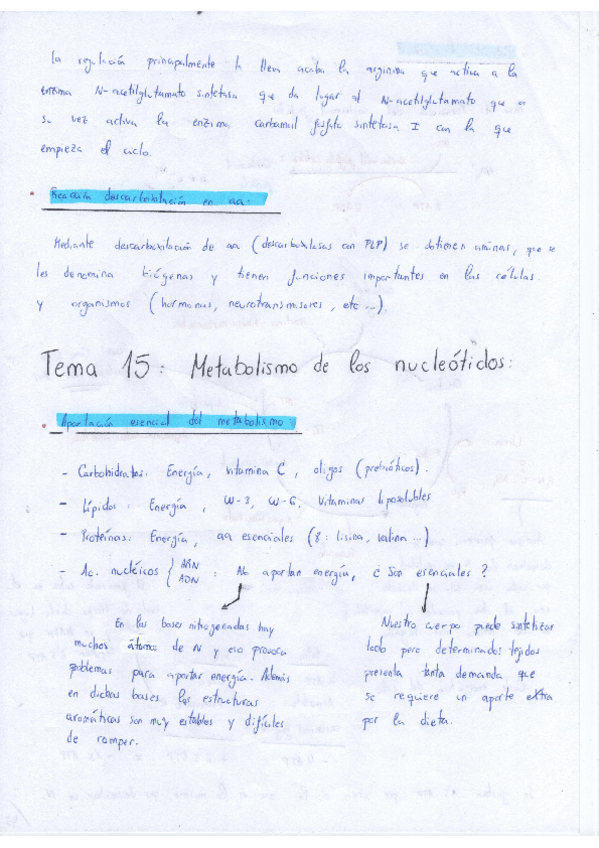 La regulación principalmente la lleva acabo la arginina que activa a la
enzima N-acetilglutamato sintetasa que da lugar al N-acetilglutamato que a
su vez activa la enzima carbamil fosfato sintetasa I con la que
empieza el ciclo.
Reacción descarboxilación en aa:
Mediante descarboxilación de aa (descarboxilasas con PLP) se obtienen aminas, que se
les denomina biógenas y tienen funciones importantes en las células
y organismos (hormonas, neurotransmisores, etc...).
Tema 15: Metabolismo de los nucleótidos:
Aportación esencial del metabolismo
- Carbohidratos: Energía, vitamina C, oligos (prebióticos).
- Lípidos: Energía, W-3, W-6, Vitaminas liposolubles
- Proteínas: Energía, aa esenciales (8: lisina, valina...)
- Ac. nucléicos { ARN ADN : No aportan energía, ¿Son esenciales?
En las bases nitrogenadas hay
muchos átomos de N y eso provoca
problemas para aportar energía. Además
en dichas bases las estructuras
aromáticas son muy estables y difíciles
de romper.
Nuestro cuerpo puede sintetizar
todo pero determinados tejidos
presenta tanta demanda que
se requiere un aporte extra
por la dieta.